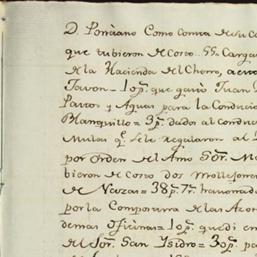 D. Porráano Como consta de su Ca
que tubieron de costo 55 Cargas
de la Hacienda del Chorro, a
Javon = 10p.s que ganó Juan
Pastos y Aguas para la Conducio
Blanquillo = 3p.s dados al conduc
Mulas q.e se le regularon al
por orden del Amo S.or M
bieron de costo dos Molle
de Nazas = 38p.s 7r.s
por la Compostura de las Azot
demas Oficinas = 10p.s quedi en
de el S.or San Isidro = 30p.s pa